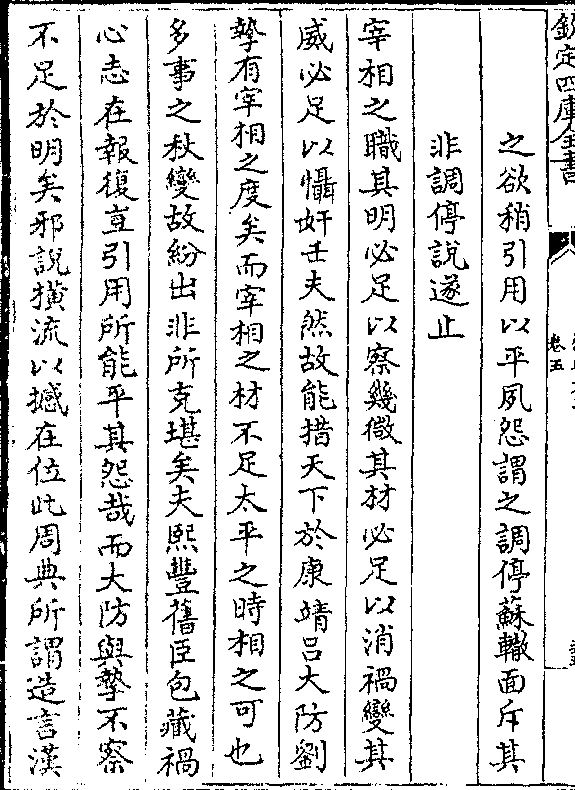 欽定四庫全書
卷五
之欲稍引用以平夙怨謂之調停蘇轍面斥其
非調停說遂止
宰相之職其明必足以察幾微其材必足以消禍變其
威必足以懾奸壬夫然故能措天下於康靖吕大防劉
摯有宰相之度矣而宰相之材不足太平之時相之可也
多事之秋變故紛出非所克堪矣夫熙豐舊臣包藏禍
心志在報復豈引用所能平其怨哉而大防與摯不察
不足於明矣邪說橫流以撼在位此周典所謂造言漢